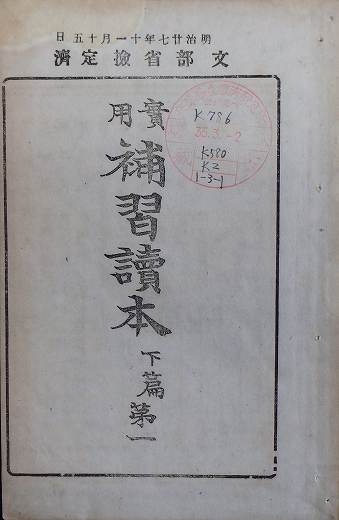 明治廿七年十一月十五日
文部省檢定濟
實用
補習讀本
下篇第一
K786
35.3.-2
K580
K2
1-3-1